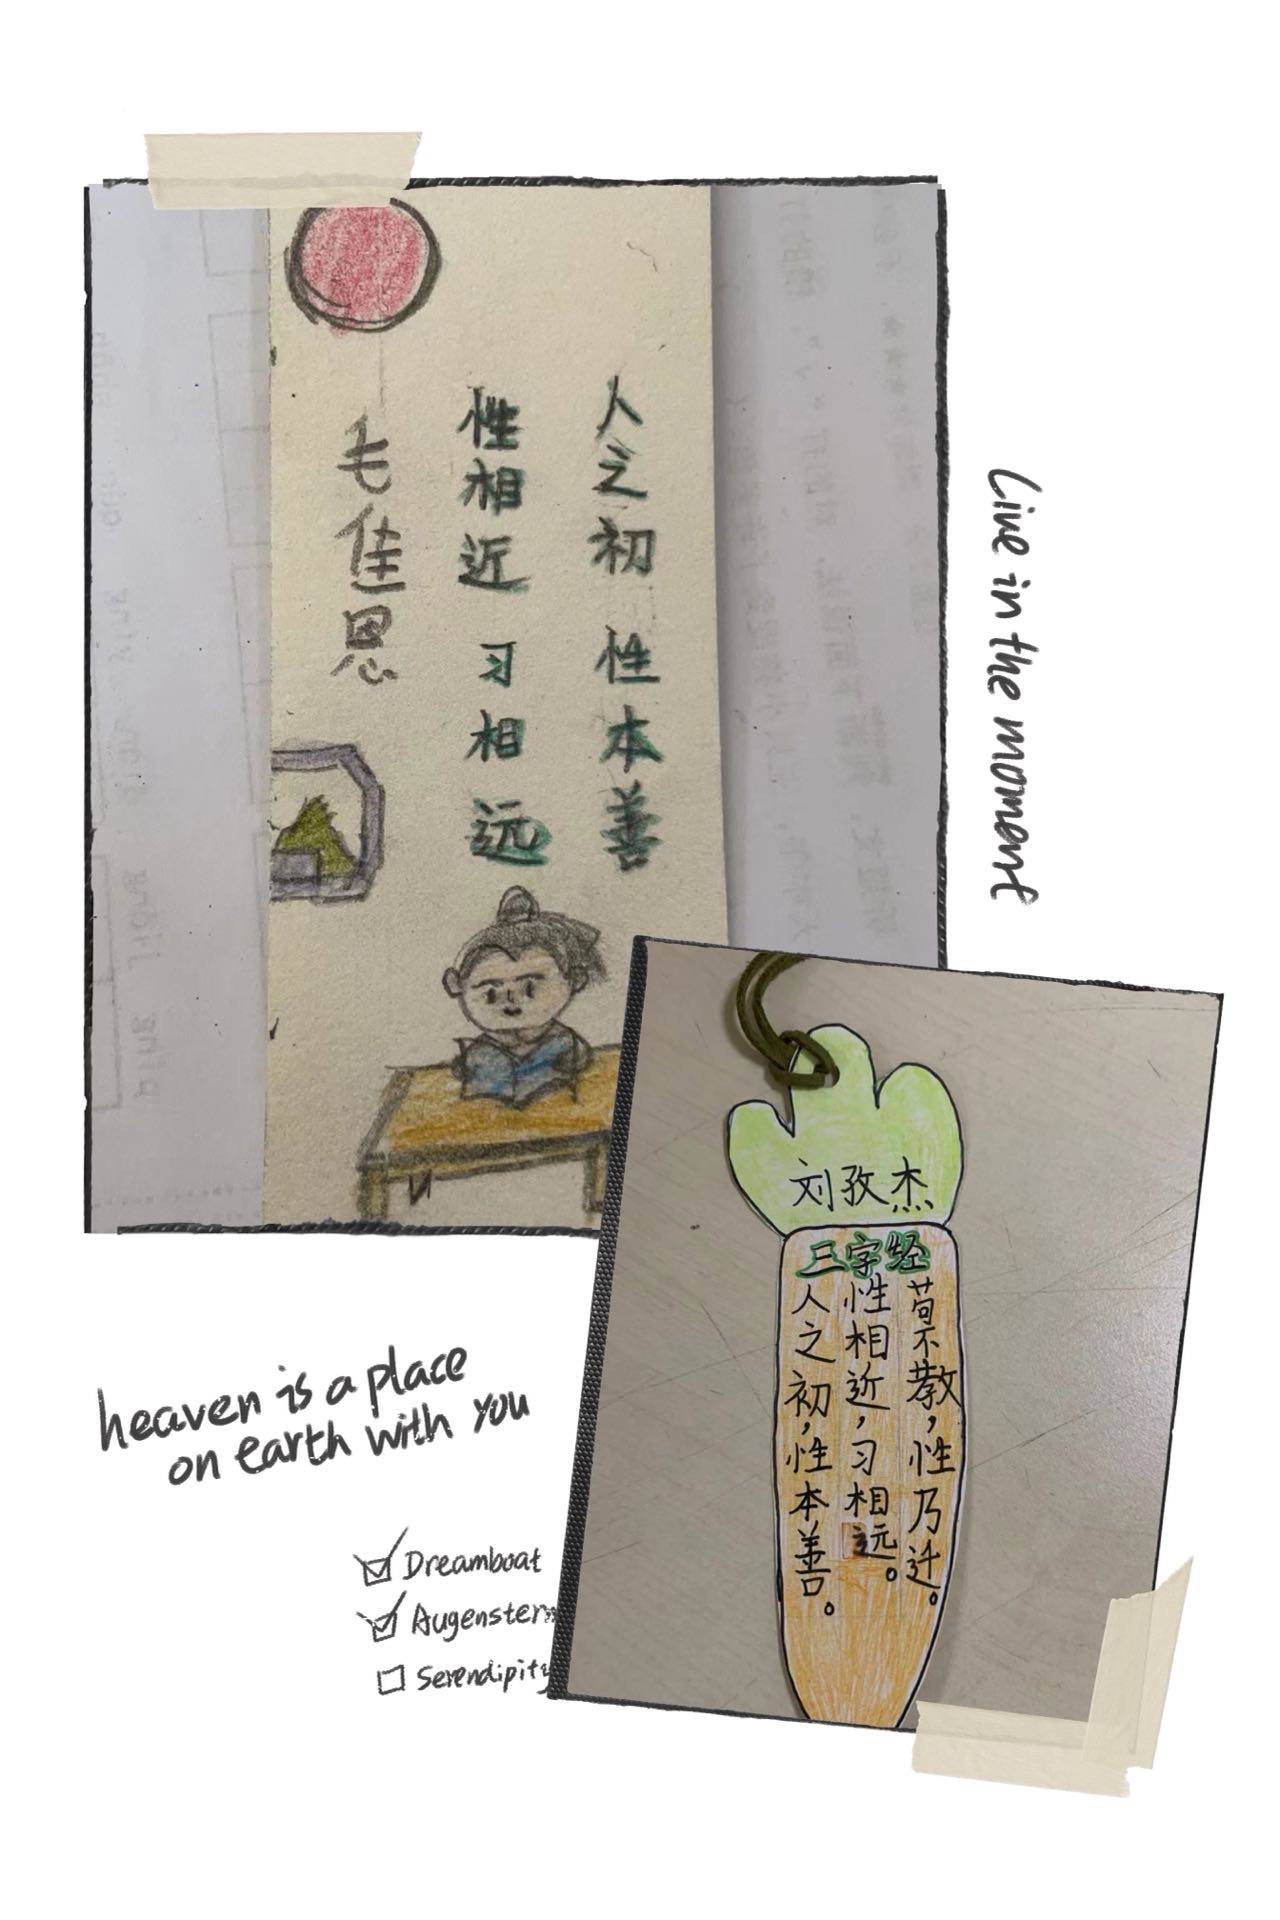 人之初 性本善
性相近 习相远
毛佳恩
Live in the moment
刘孜杰
三字经
人之初，性本善。
性相近，习相远。
苟不教，性乃迁。
heaven is a place
on earth with you
Dreamboat
Augenstern
Serendipity